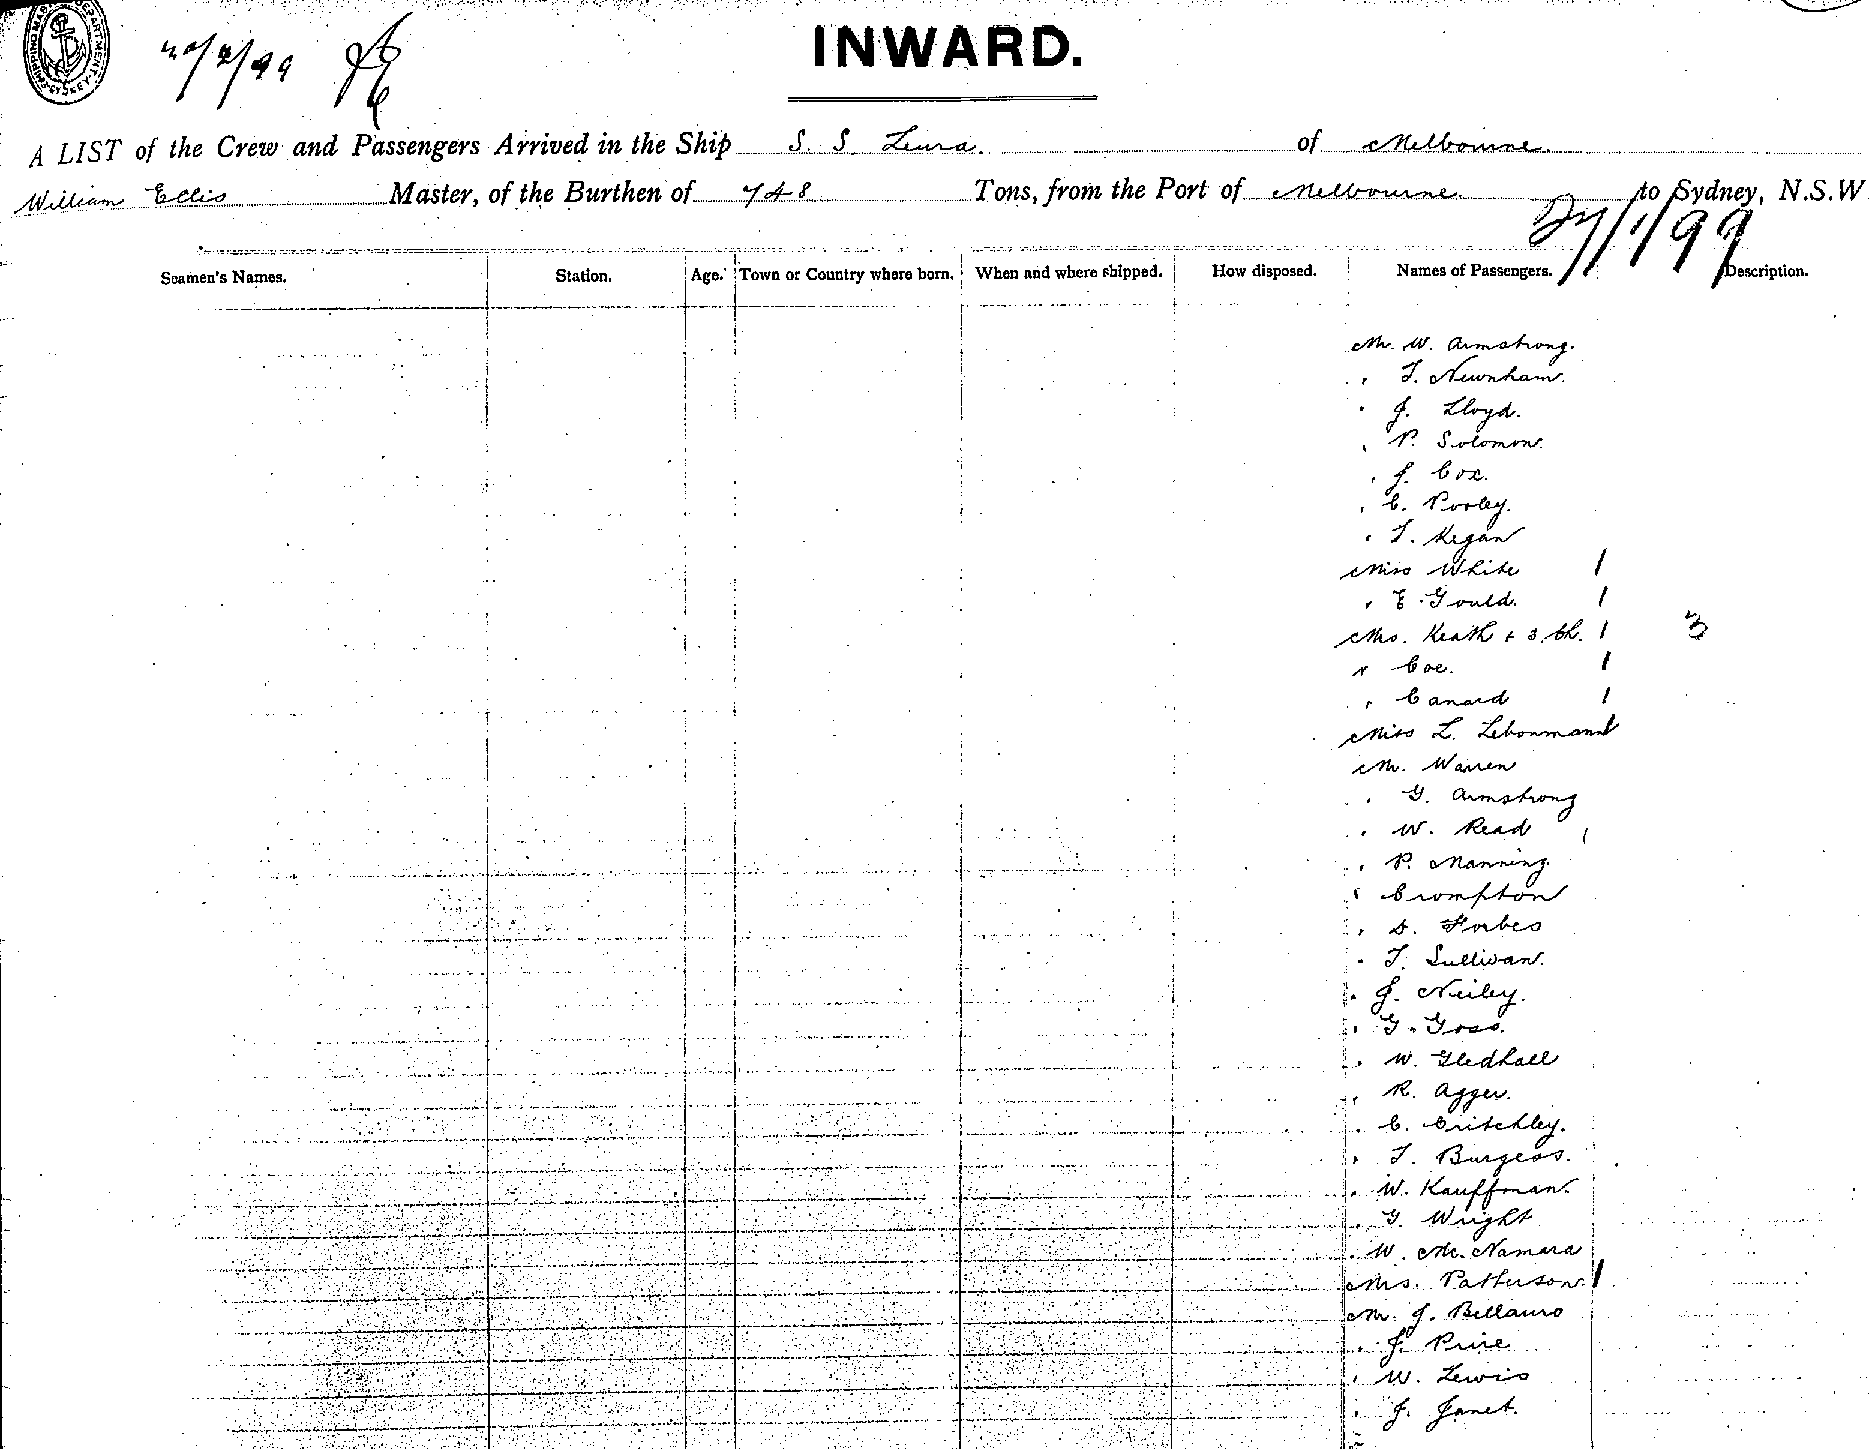 INWARD.
A LIST of the Crew and Passengers Arrived in the Ship S. S. Leura. of Melbourne
William Ellis Master, of the Burthen of 748 Tons, from the Port of Melbourne to Sydney, N.S.W
27/1/99
Seamen's Names. Station. Age. Town or Country where born. When and where shipped. How disposed. Names of Passengers. Description.
Mr. W. Armstrong.
" T. Newnham.
" J. Lloyd.
" P. Solomon.
" J. Cox.
" C. Pooley.
" T. Kegan
Miss White 1
" E. Gould. 1
Mrs. Keath + 3 ch. 1 3
" Coe. 1
" Canard 1
Miss L. Lebonmand
Mr. Warren
" G. Armstrong
" W. Read
" P. Manning
" Crompton
" D. Forbes
" T. Sullivan.
" J. Neiley.
" G. Goss.
" W. Gledhall
" R. Agger.
" C. Critchley.
" T. Burgess.
" W. Kauffman.
" G. Wright
" W. McNamara
Mrs. Patterson 1
Mr. J. Bellauro
" J. Price
" W. Lewis
" J. Janet.